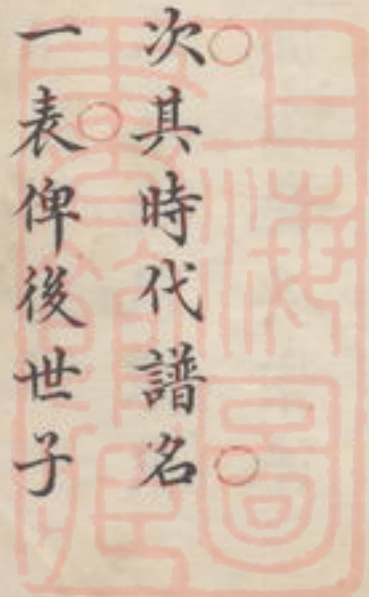 次其時代譜名
一表俾後世子
上海圖書館藏